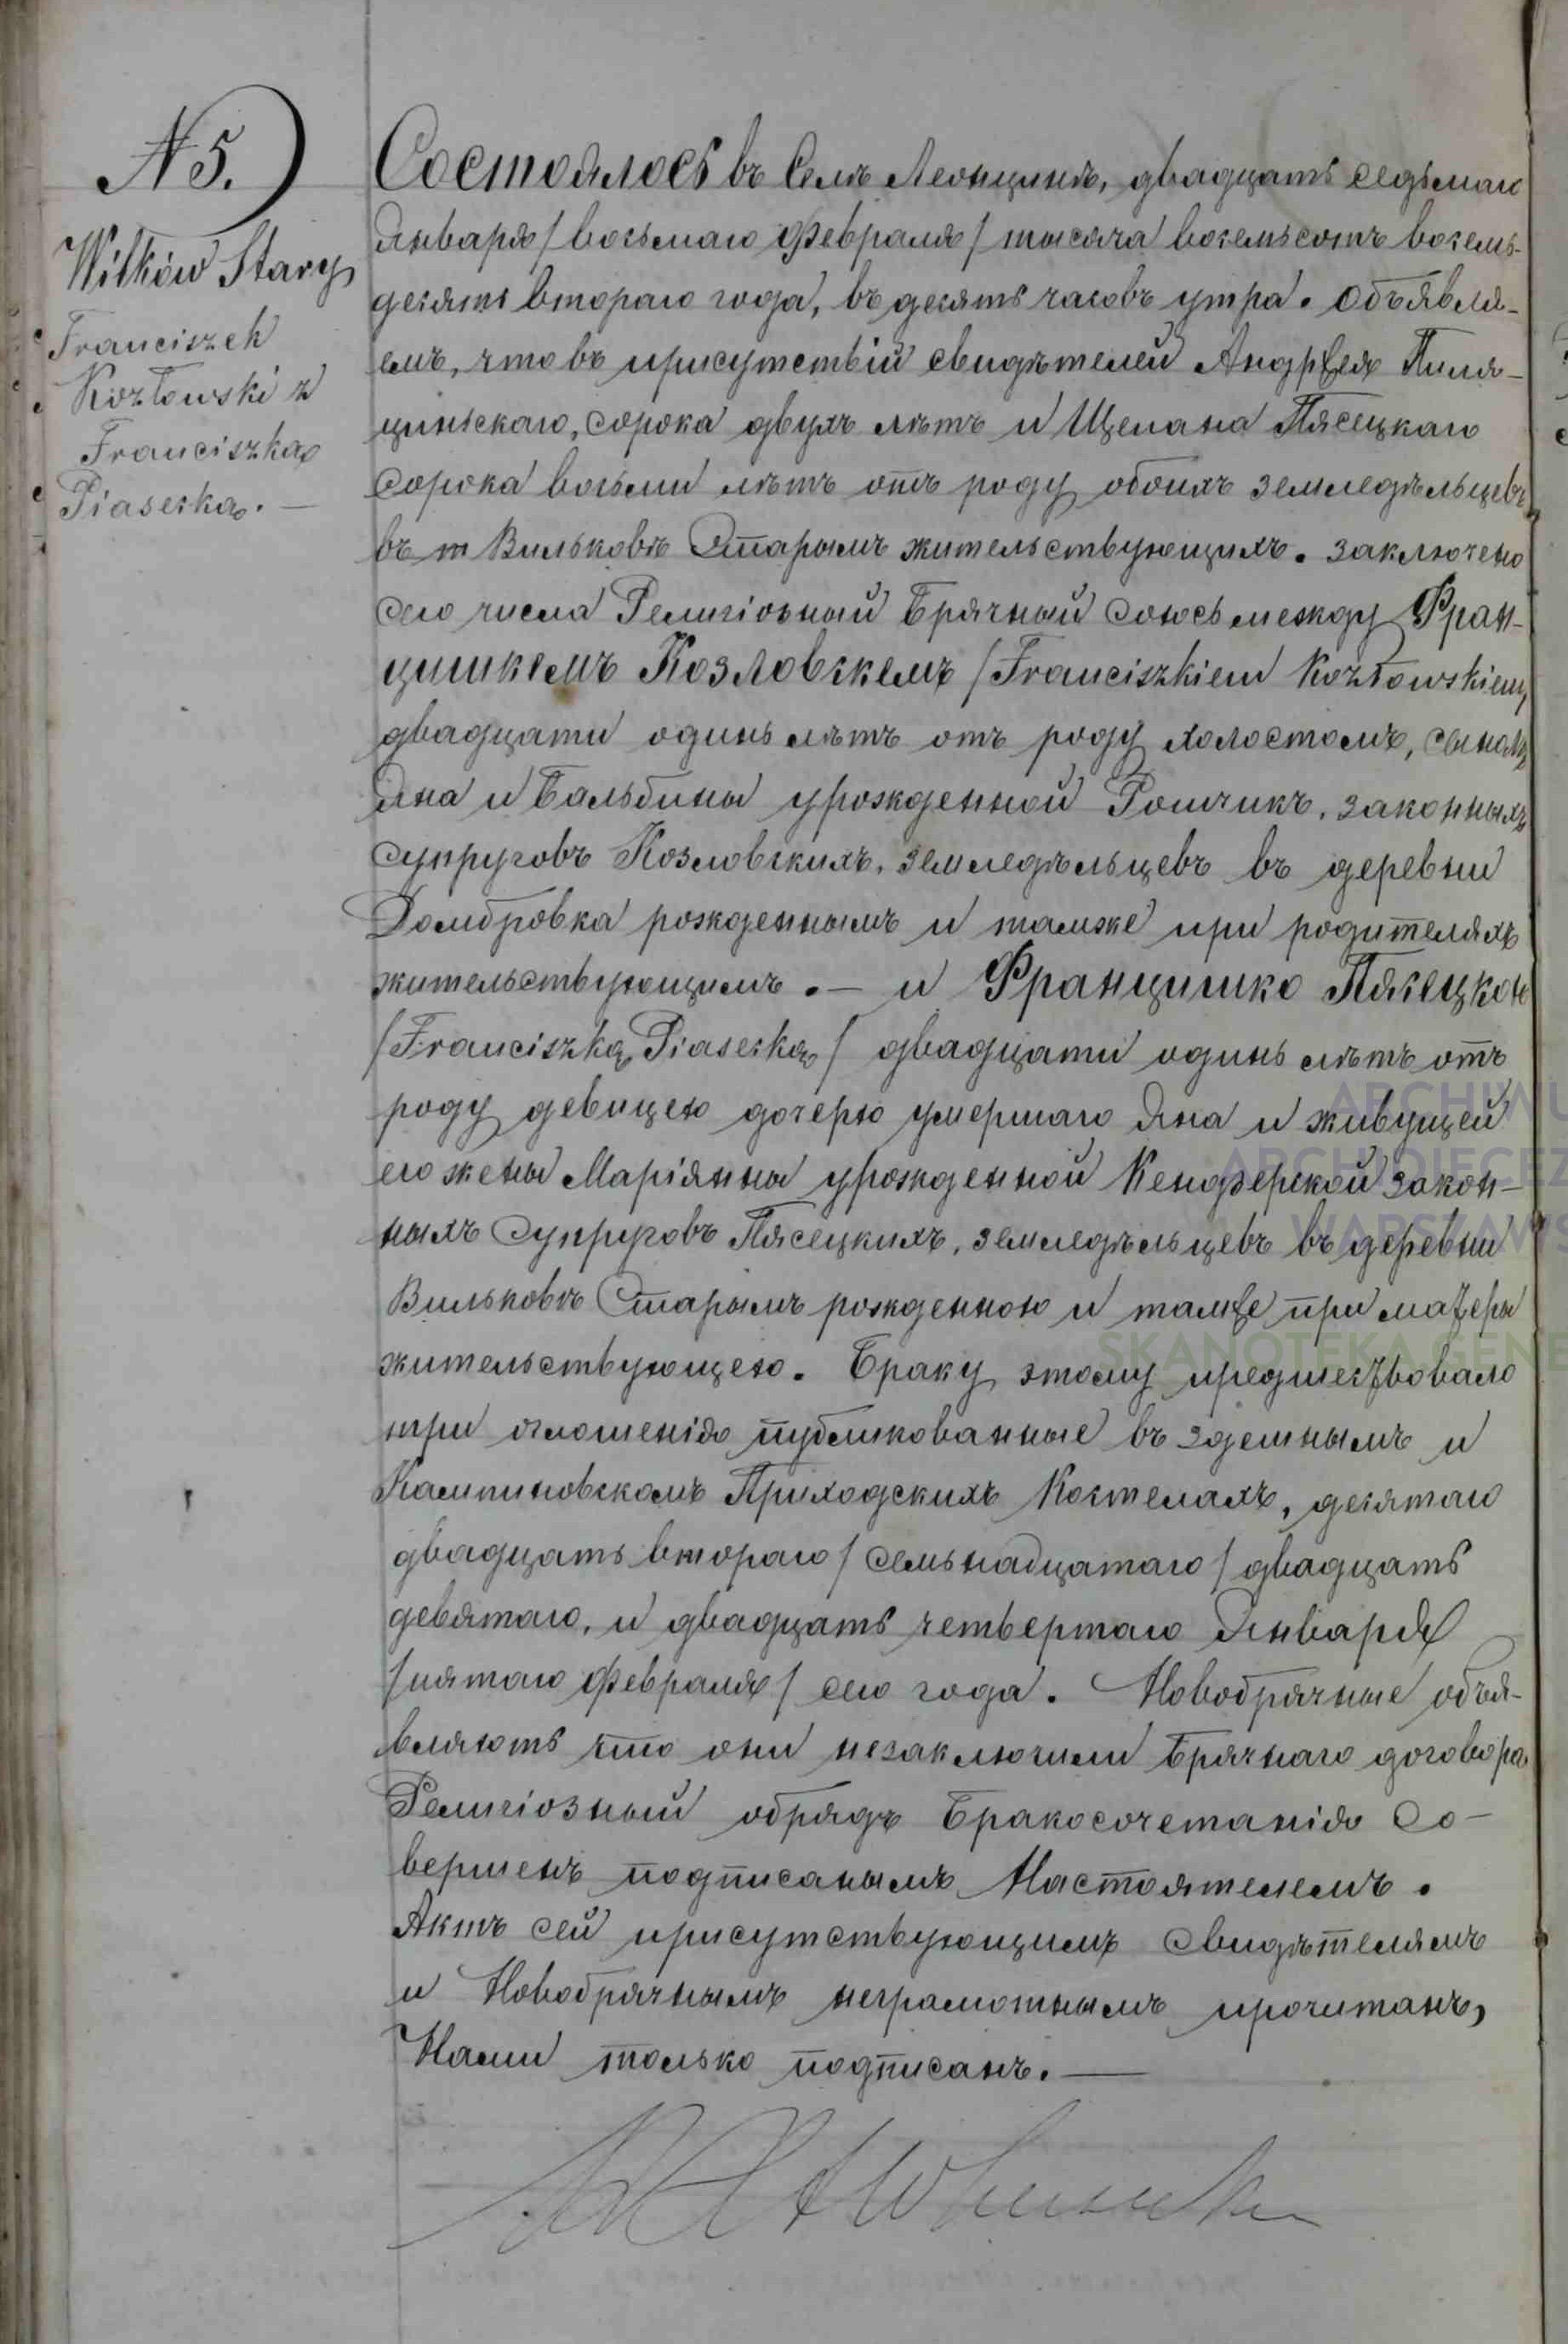 N 5.
Wilków Stary
Franciszek
Kozłowski z
Franciszką
Piasecką. —
Состоялось въ Селѣ Леонцинѣ, двадцать седьмаго
Января / восьмаго Февраля / тысяча восемьсотъ восемь-
десятъ втораго года, въ десять часовъ утра. Объявля-
емъ, что въ присутствій свидѣтелей Андрея Пиля-
циньскаго, сорока двухъ лѣтъ и Щепана Пясецкаго
сорока восьми лѣтъ отъ роду обоихъ земледѣльцевъ
въ Вильковѣ Старымъ жительствующихъ. заключено
сего числа Религіозный Брачный союсъ между Фран-
цишкемъ Козловскемъ / Franciszkiem Kozłowskiem
двадцати одинъ лѣтъ отъ роду холостомъ, сыномъ
Яна и Бальбины урожденной Ромчикъ, законныхъ
супруговъ Козловскихъ, земледѣльцевъ въ деревни
Домбровка рожденнымъ и тамже при родителяхъ
жительствующимъ. — и Францишко Пясецкою
/ Franciszką Piasecką / двадцати одинъ лѣтъ отъ
роду девицею дочерю умершаго Яна и живущей
его жены Маріянны урожденной Кендзерской закон-
ныхъ супруговъ Пясецкихъ, земледѣльцевъ въ деревни
Вильковѣ Старымъ рожденною и тамже при матери
жительствующею. Браку этому предшествовало
три оглошенія публикованные въ здешнымъ и
Кампиновскомъ Приходскихъ Костелахъ, десятаго
двадцать втораго / семьнадцатаго / двадцать
девятаго, и двадцать четвертаго Января
/ пятаго Февраля / сего года. Новобрачные объя-
вляютъ что они незаключили Брачнаго договора
Религіозный обрядъ Бракосочетанія Со-
вершенъ подписанымъ Настоятелемъ.
Актъ сей присутствующимъ свидѣтелямъ
и Новобрачнымъ неграмотнымъ прочитанъ,
Нами только подписанъ. —
ARCHIWU
ARCHIDIECEZ
WARSZAWS
SKANOTEKA GENE